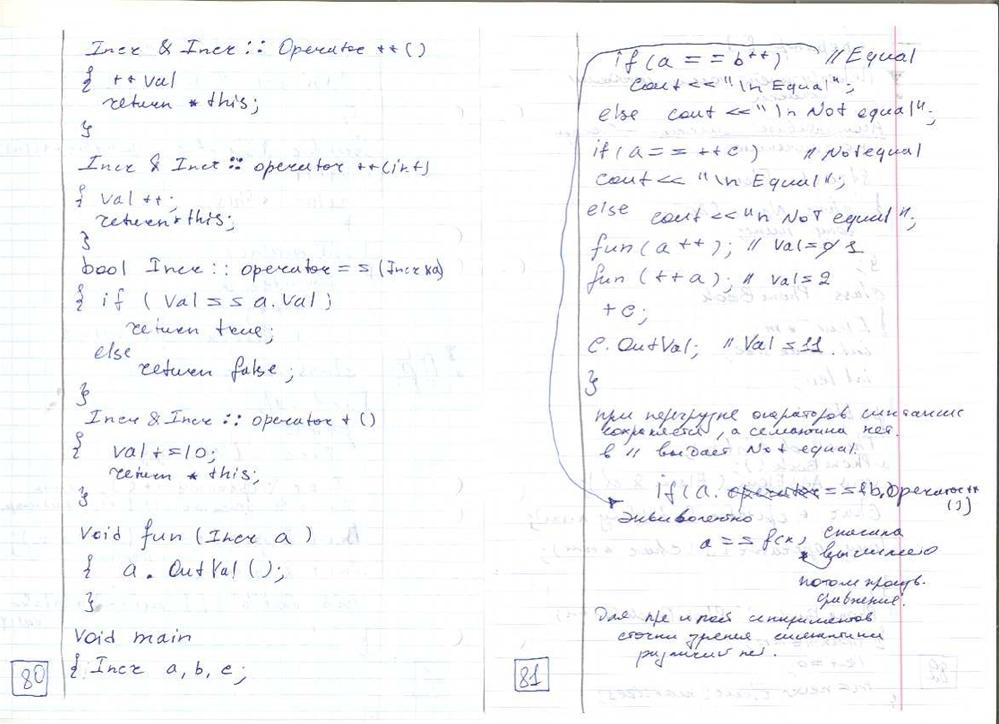 Incr & Incr :: Operator ++()
{ ++ val
return * this;
}
Incr & Incr :: operator ++(int)
{ val ++;
return * this;
}
bool Incr :: operator == (Incr &a)
{ if ( Val == a.Val)
return true;
else
return false;
}
Incr & Incr :: operator + ()
{ val +=10;
return * this;
}
Void fun (Incr a)
{ a. OutVal ();
}
Void main
{ Incr a, b, c;
80
if (a == b++) // Equal
cout << "\n Equal";
else cout << "\n Not equal";
if (a == ++c) // Not equal
cout << "\n Equal";
else cout << "\n Not equal";
fun (a ++); // Val = 1
fun (++a); // val = 2
+c;
c. OutVal; // Val = 11.
}
при перегрузке операторов синтаксис
сохраняется, а семантика нет.
в // выдает Not equal.
if (a. operator == (b, operator++
())
Эквивалентно
a == f(x), сначала
вычислено
потом произв.
сравнение.
Для пре и пост инкрементов
с точки зрения семантики
различий нет.
81